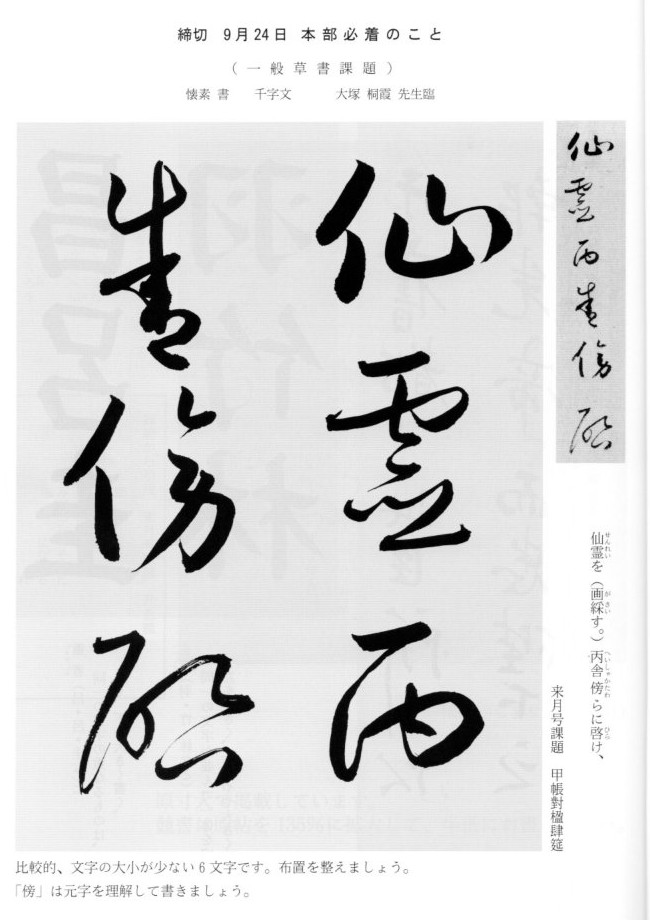 締切 9月24日 本部必着のこと
（一般草書課題）
懐素 書 千字文 大塚 桐霞 先生臨
仙靈丙舎傍啓
仙靈丙
舎傍啓
仙霊を（画綵す。）丙舎傍らに啓け、
せんれい がさい へいしゃかたわ ひら
来月号課題 甲帳對楹肆筵
比較的、文字の大小が少ない6文字です。布置を整えましょう。
「傍」は元字を理解して書きましょう。